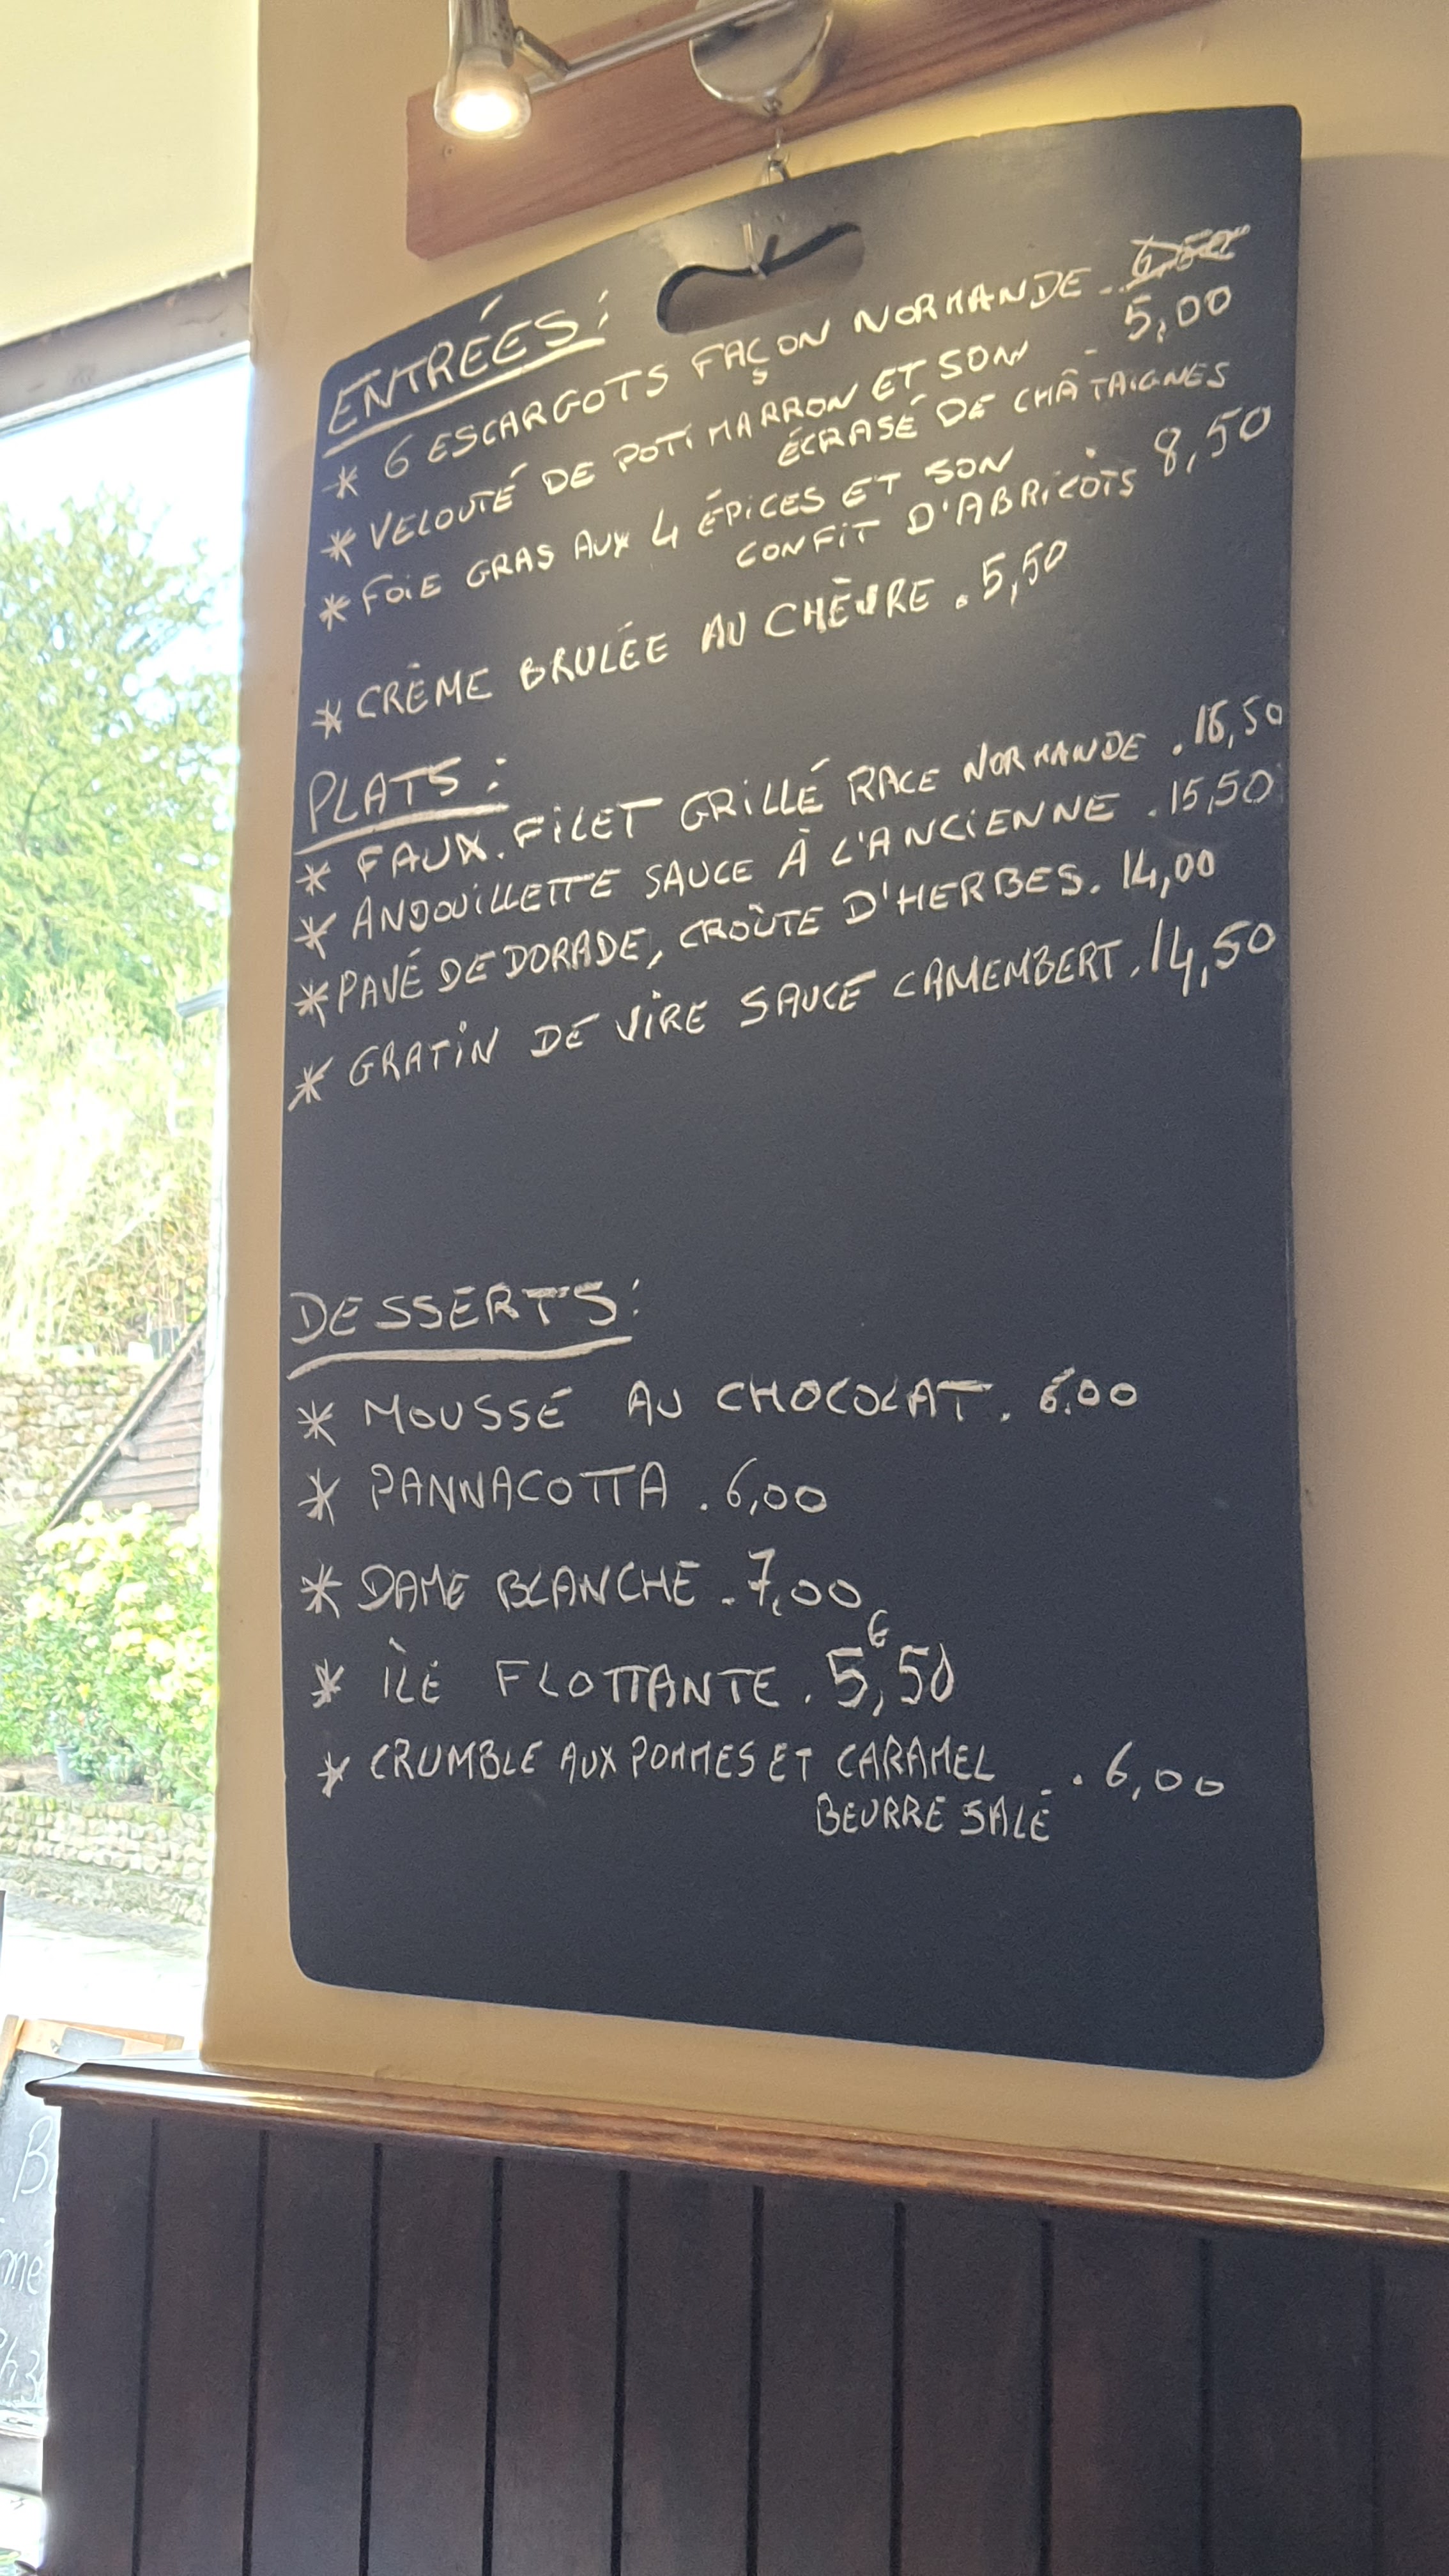 ENTRÉES:
* 6 ESCARGOTS FAÇON NORMANDE
* VELOUTÉ DE POTIMARRON ET SON - 5,00
ÉCRASÉ DE CHÂTAIGNES
* FOIE GRAS AUX 4 ÉPICES ET SON
CONFIT D'ABRICOTS 8,50
* CRÈME BRULÉE AU CHÈVRE . 5,50
PLATS:
* FAUX-FILET GRILLÉ RACE NORMANDE . 16,50
* ANDOUILLETTE SAUCE À L'ANCIENNE . 15,50
* PAVÉ DE DORADE, CROÛTE D'HERBES . 14,00
* GRATIN DE VIRE SAUCE CAMEMBERT . 14,50
DESSERTS:
* MOUSSE AU CHOCOLAT . 6,00
* PANNACOTTA . 6,00
* DAME BLANCHE . 7,00
6
* ÎLE FLOTTANTE . 5,50
* CRUMBLE AUX POMMES ET CARAMEL . . 6,00
BEURRE SALÉ